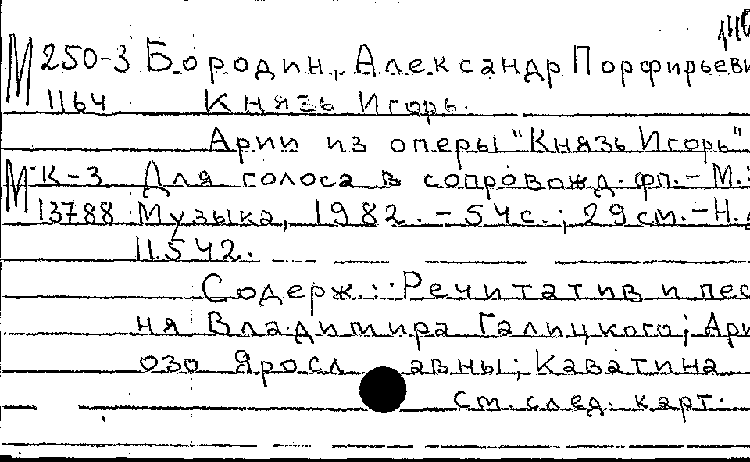 М 250-3 Бородин, Александр Порфирьеви
1164 Князь Игорь.
Арии из оперы "Князь Игорь"
М К-3 Для голоса в сопровожд. фп. - М.:
13788 Музыка, 1982. - 54 с.; 29 см. - Н.
11.542.
Содерж.: Речитатив и пес
ня Владимира Галицкого; Ари
озо Яросл авны; Каватина
см. след. карт.